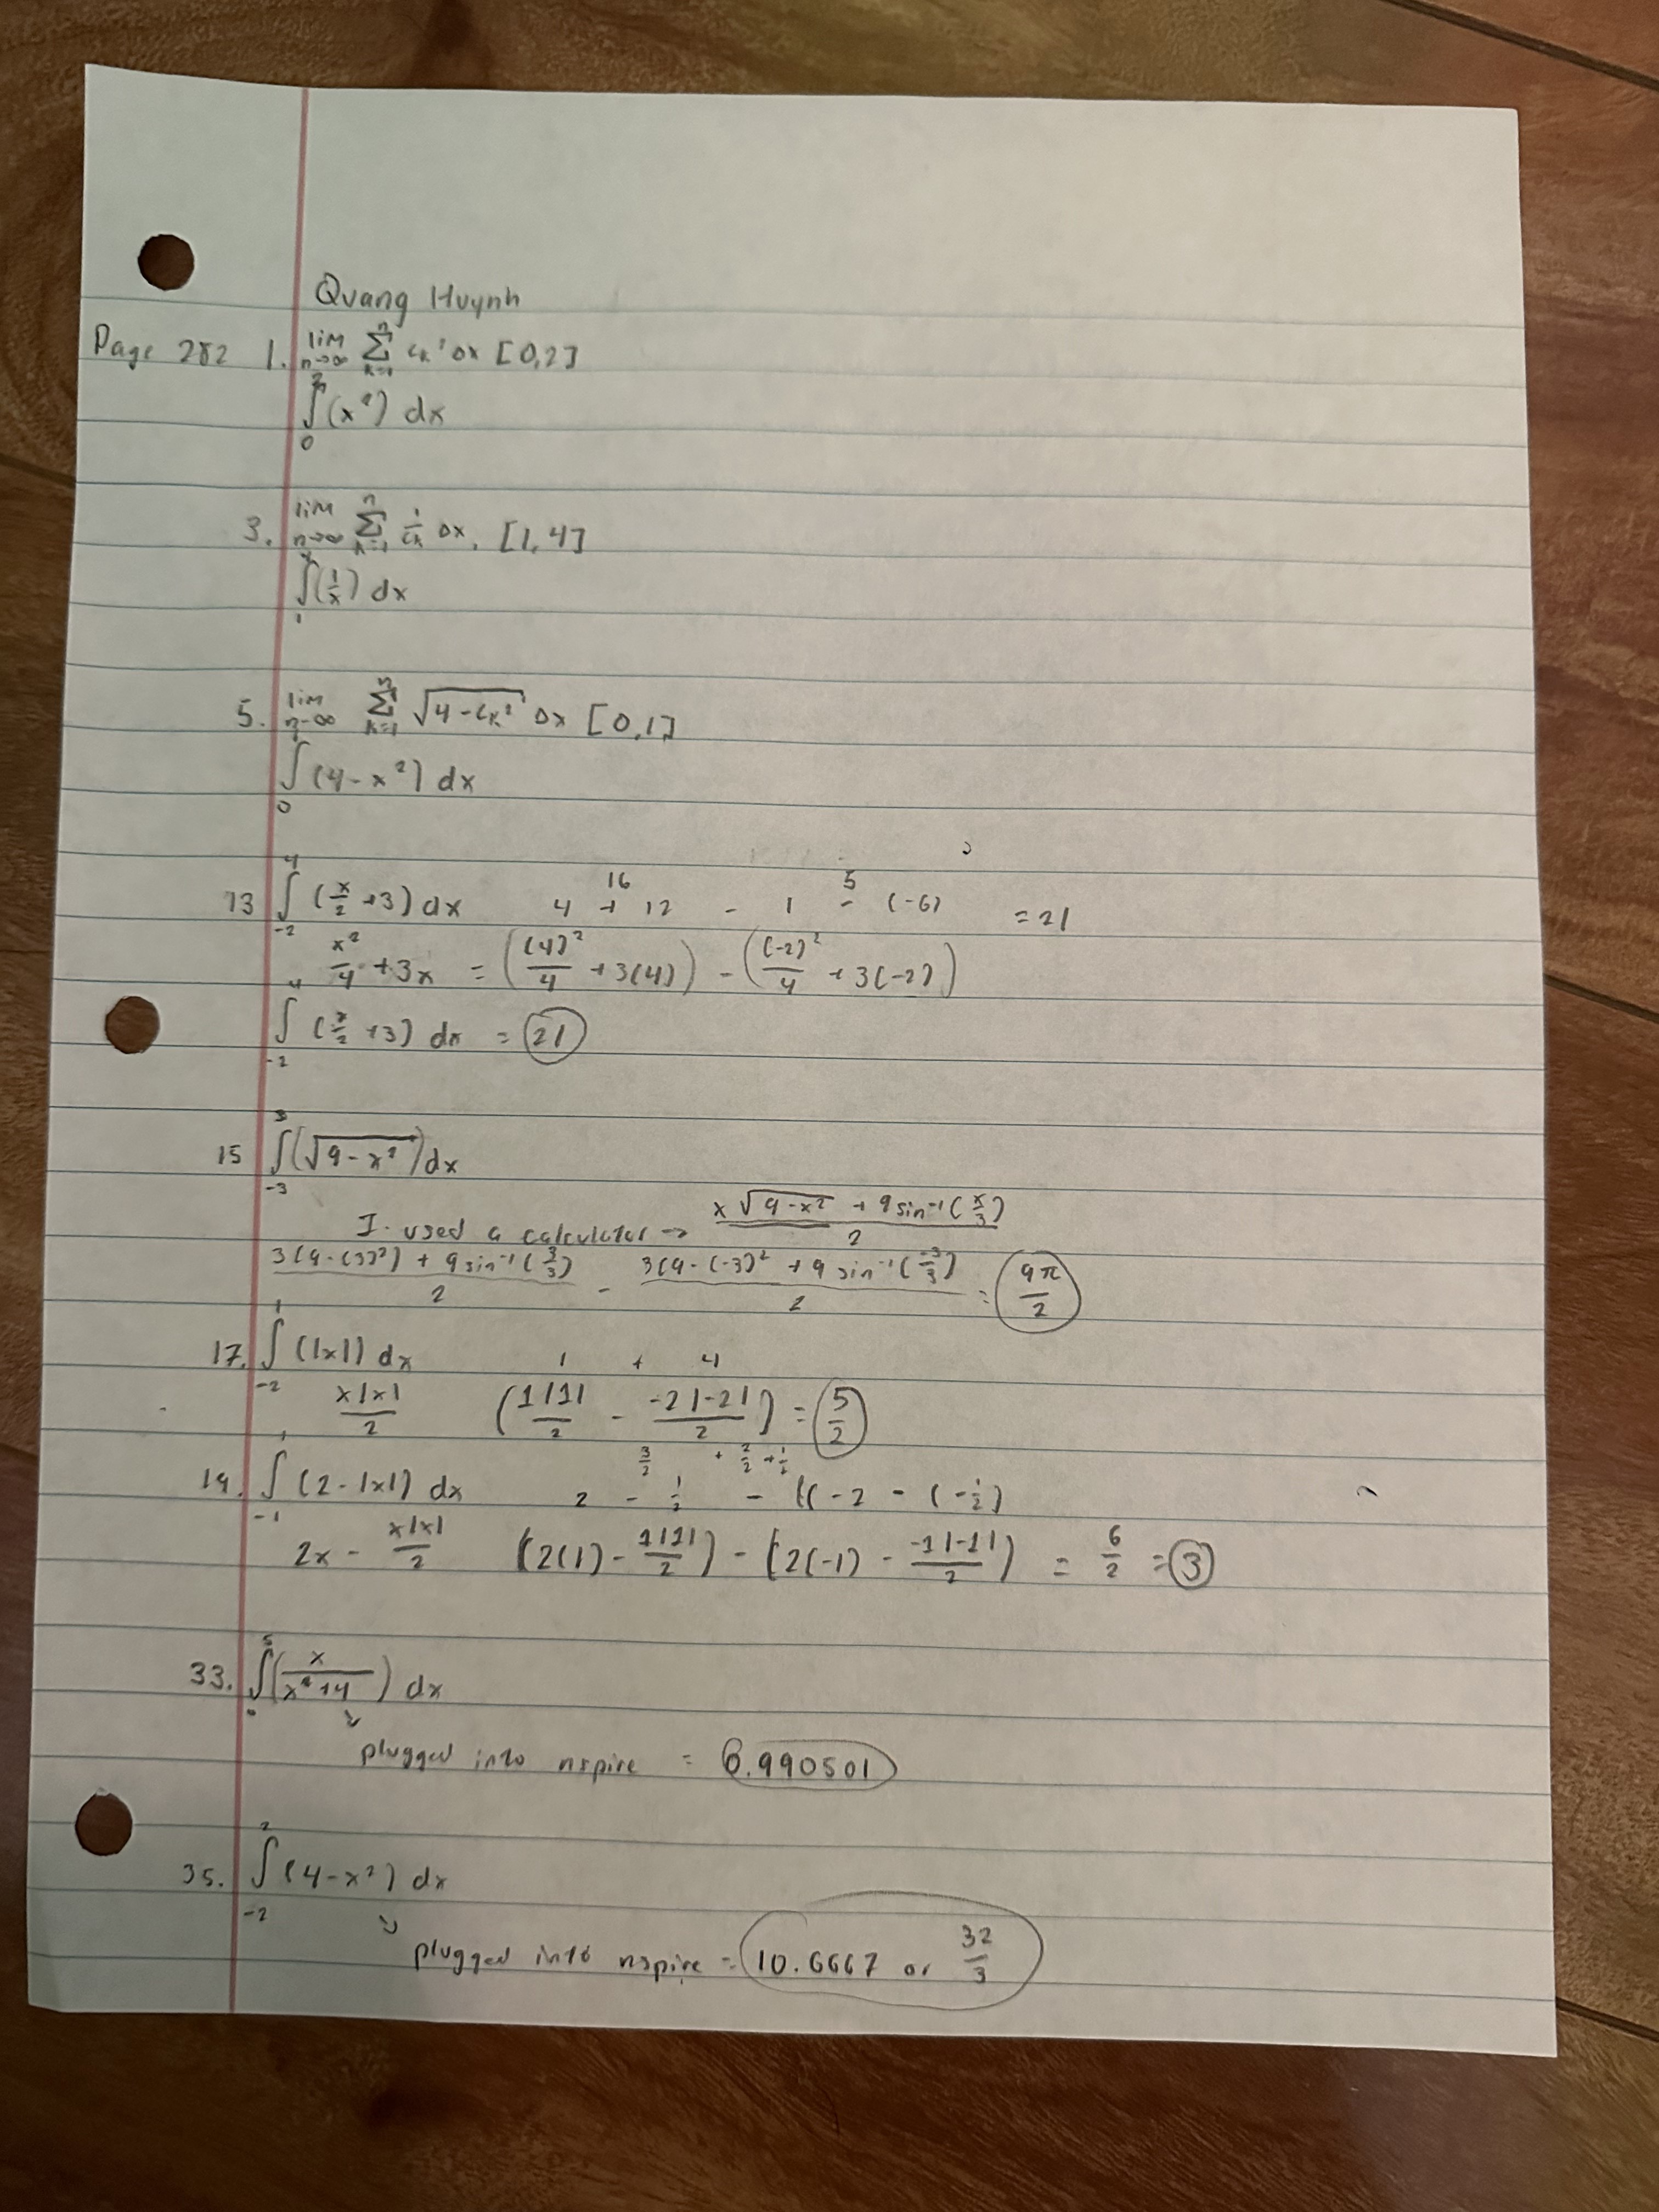 Quang Huynh
Page 282 1. lim n→∞ n Σ k=1 ck² Δx [0,2]
2 ∫ 0 (x²) dx
3. lim n→∞ n Σ k=1 1/ck Δx, [1,4]
4 ∫ 1 (1/x) dx
5. lim n→∞ n Σ k=1 √(4-ck²) Δx [0,1]
1 ∫ 0 (4-x²) dx
16 5
13 4 ∫ -2 (x/2 +3) dx 4 + 12 - 1 - (-6) = 21
x²/4 + 3x = ((4)²/4 + 3(4)) - ((-2)²/4 + 3(-2))
4 ∫ -2 (x/2 +3) dx = 21
15 3 ∫ -3 (√(9-x²)) dx
I used a calculator → (x√(9-x²) + 9 sin⁻¹(x/3))/2
(3(9-(3)²) + 9 sin⁻¹(3/3))/2 - (3(9-(-3)² + 9 sin⁻¹(-3/3))/2 = 9π/2
17. 1 ∫ -2 (|x|) dx 1 + 4
x|x|/2 (1|1|/2 - -2|-2|/2) = 5/2
3/2 + 2/2 + 1/2
19. 1 ∫ -1 (2-|x|) dx 2 - 1/2 - ((-2 - (-1/2)
2x - x|x|/2 (2(1) - 1|1|/2) - (2(-1) - -1|-1|/2) = 6/2 = 3
33. 5 ∫ 0 (x/(x²+4)) dx
plugged into nspire = 0.990501
35. 2 ∫ -2 (4-x²) dx
plugged into nspire = 10.6667 or 32/3